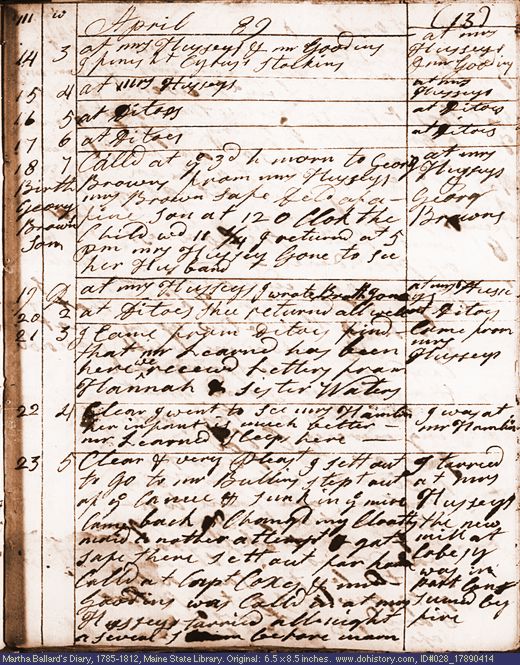 m w April 89 (13)
14 3 at mrs Husseys & mr Goodins at mrs
I spun Cyrus stokins Husseys & mr Goodins
15 4 at mrs Husseys at mrs Husseys
16 5 at Ditoes at Ditoes
17 6 at Ditoes at Ditoes
18 7 Calld at ye 3d h morn to George at mrs
Birth Browns from mrs Husseys Husseys
George mrs Brown safe Deld of a George
Browns fine son at 12 O Clok the Browns
Son Child wd 11 1/4 I returned at 5
pm mrs Hussey Gone to see
her Husband
19 at mrs Husseys I wrote at mrs Husseys
20 2 at Ditoes shee returned all well at Ditoes
21 3 I Came from Ditoes find Came from
that mr Learned has been mrs
here we receivd Letters from Husseys
Hannah & Sister Waters
22 4 Clear I went to see mrs Hamlin I was at
her infant is much better mr Hamlins
mr Learned sleeps here
23 5 Clear & very Pleast I sett out I tarried
to go to mr Bullins stept out at mrs
of ye Canoe & sunk in ye mire Husseys
Came back & Changd my Cloaths the new
maid another attempt & got mill at
safe there sett out for home
Calld at Capt Coxes & mr was in
Goodins was Calld in at mrs part Con
Husseys tarried all night sumed by
a severe before morn fire
Martha Ballard's Diary, 1785-1812, Maine State Library. Original: 6.5 x 8.5 inches. www.dohistory.com, ID#028_17890414